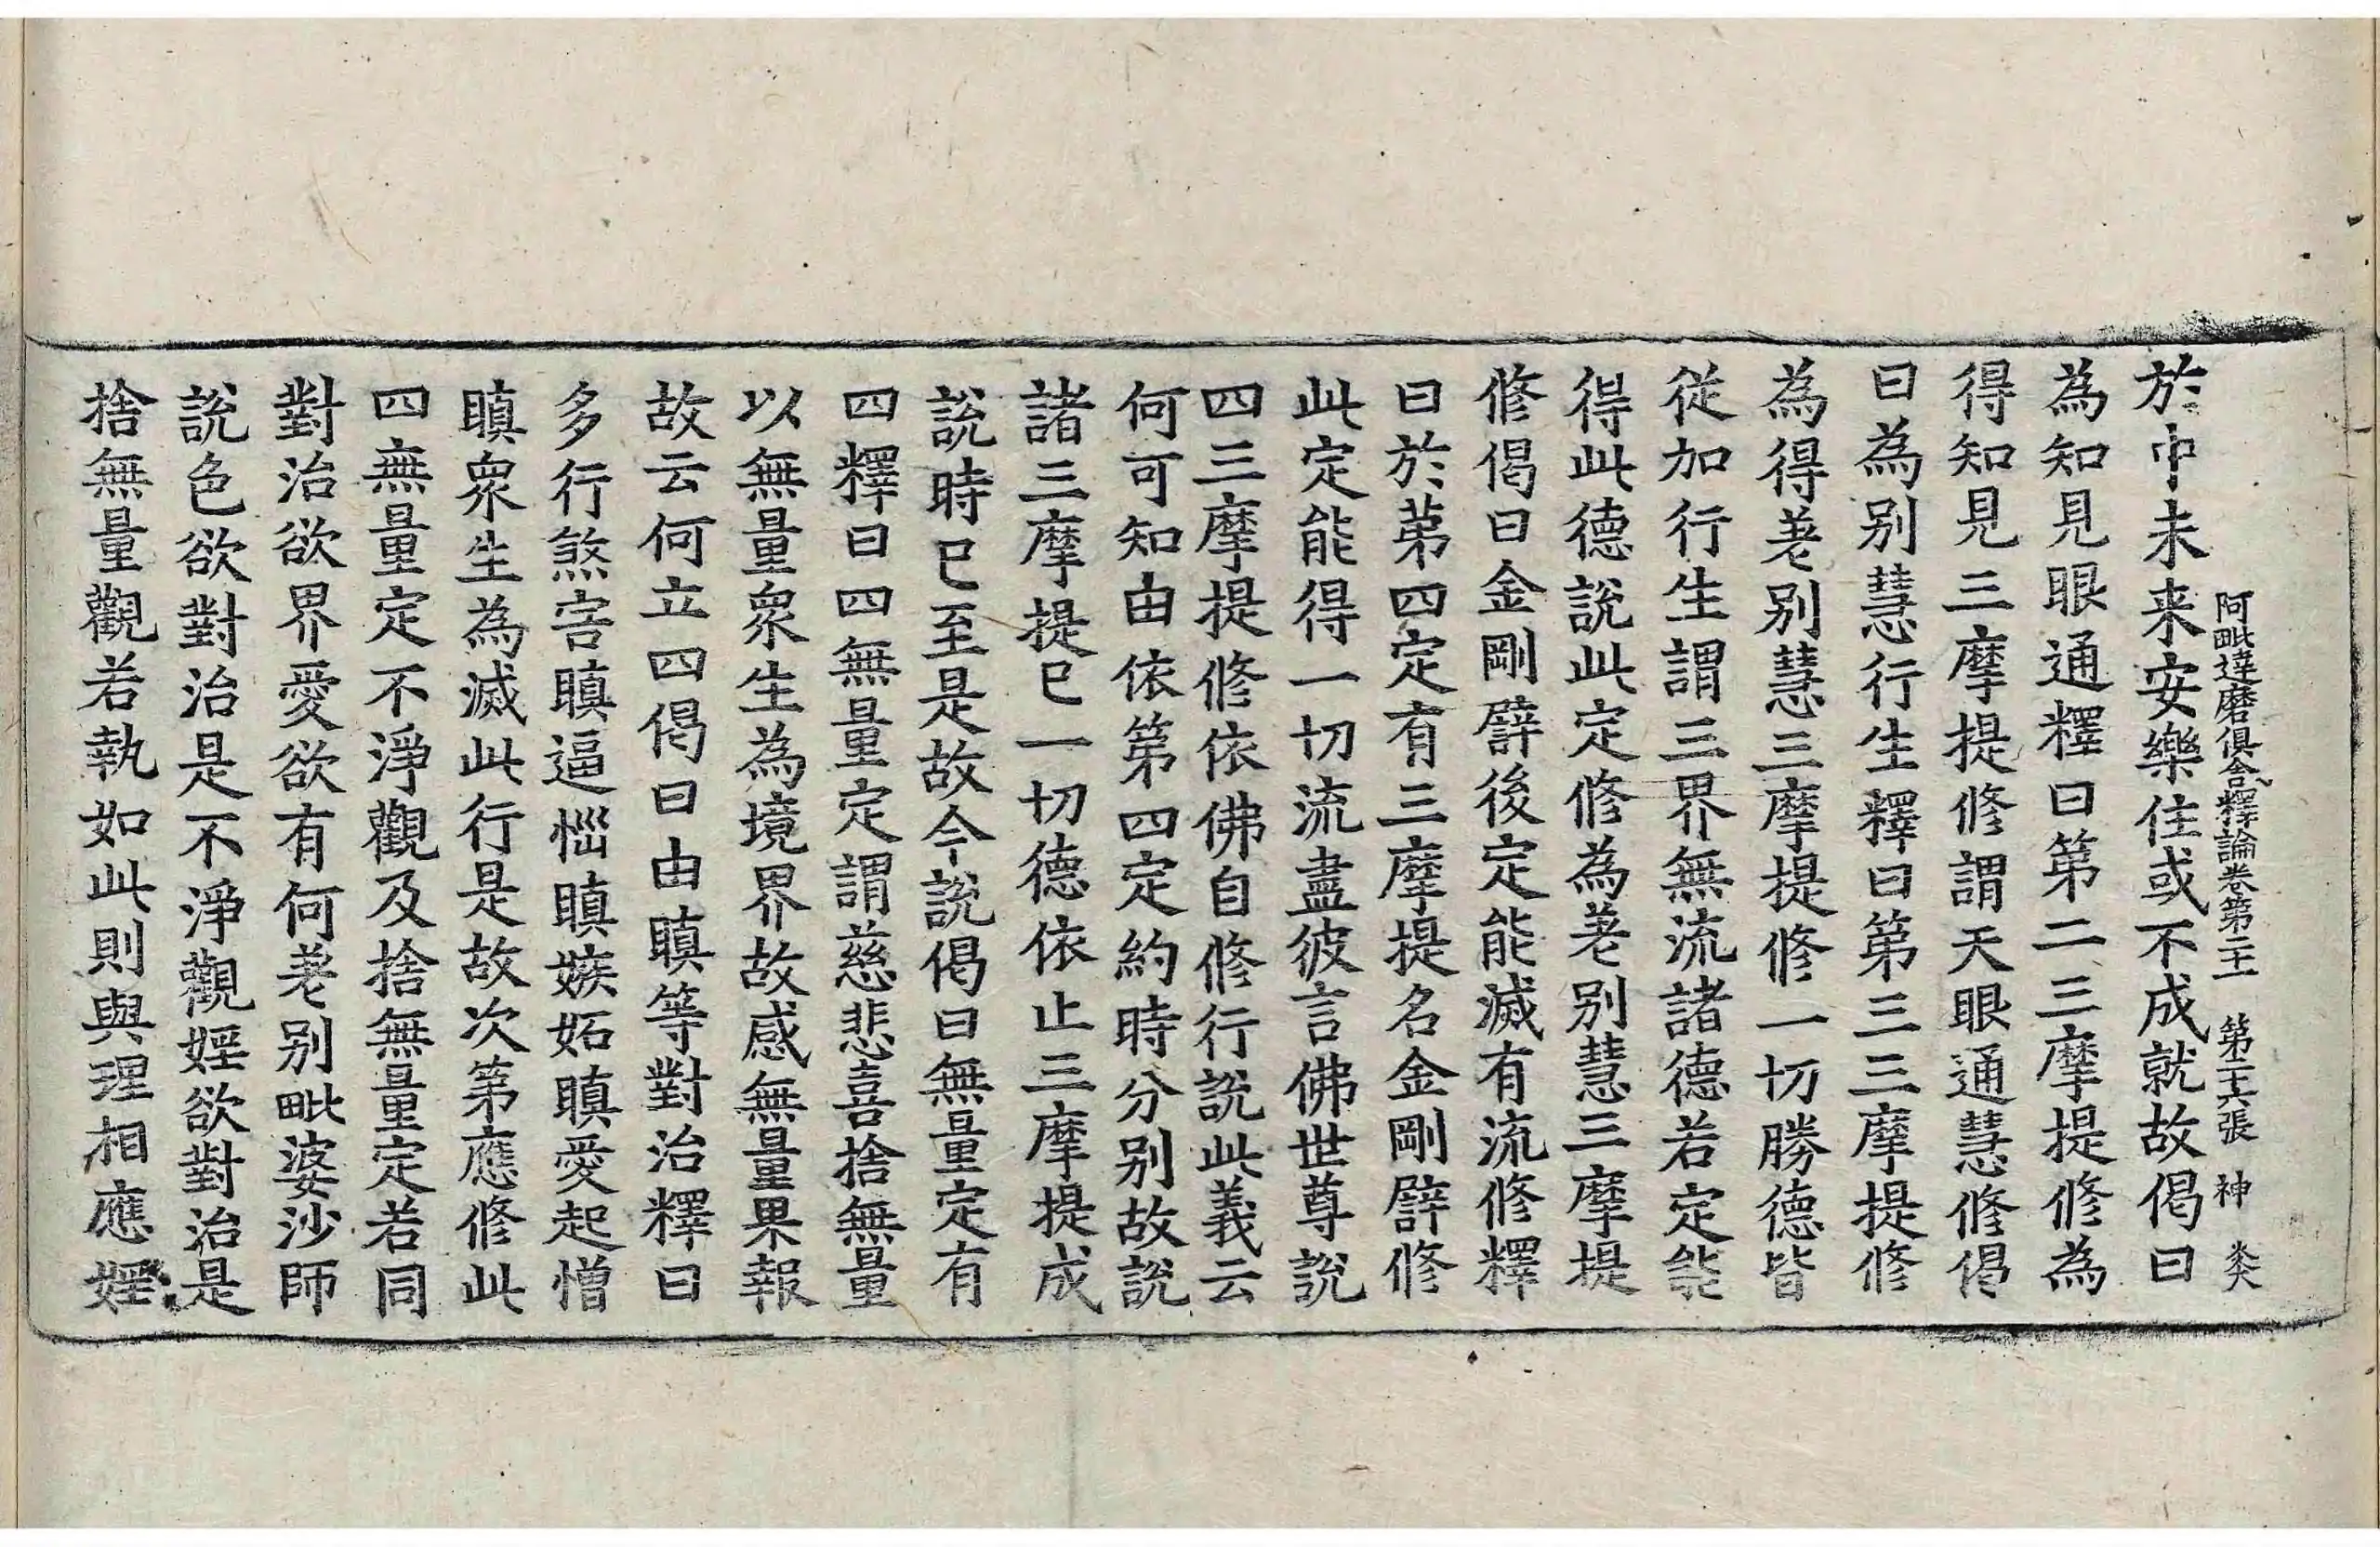 阿毗達磨俱舍釋論卷第二十一 第二十六張 神 炎
於中未来安樂住或不成就故偈曰
為知見眼通釋曰第二三摩提修為
得知見三摩提修謂天眼通慧修偈
曰為别慧行生釋曰第三三摩提修
為得差别慧三摩提修一切勝德皆
從加行生謂三界無流諸德若定能
得此德說此定修為差别慧三摩提
修偈曰金剛譬後定能滅有流修釋
曰於第四定有三摩提名金剛譬修
此定能得一切流盡彼言佛世尊說
四三摩提修依佛自修行說此義云
何可知由依第四定約時分别故說
諸三摩提已一切德依止三摩提成
說時已至是故今說偈曰無量定有
四釋曰四無量定謂慈悲喜捨無量
以無量衆生為境界故感無量果報
故云何立四偈曰由瞋等對治釋曰
多行煞害瞋逼惱瞋嫉妬瞋愛起憎
瞋衆生為滅此行是故次第應修此
四無量定不淨觀及捨無量定若同
對治欲界愛欲有何差别毗婆沙師
說色欲對治是不淨觀婬欲對治是
捨無量觀若執如此則與理相應婬